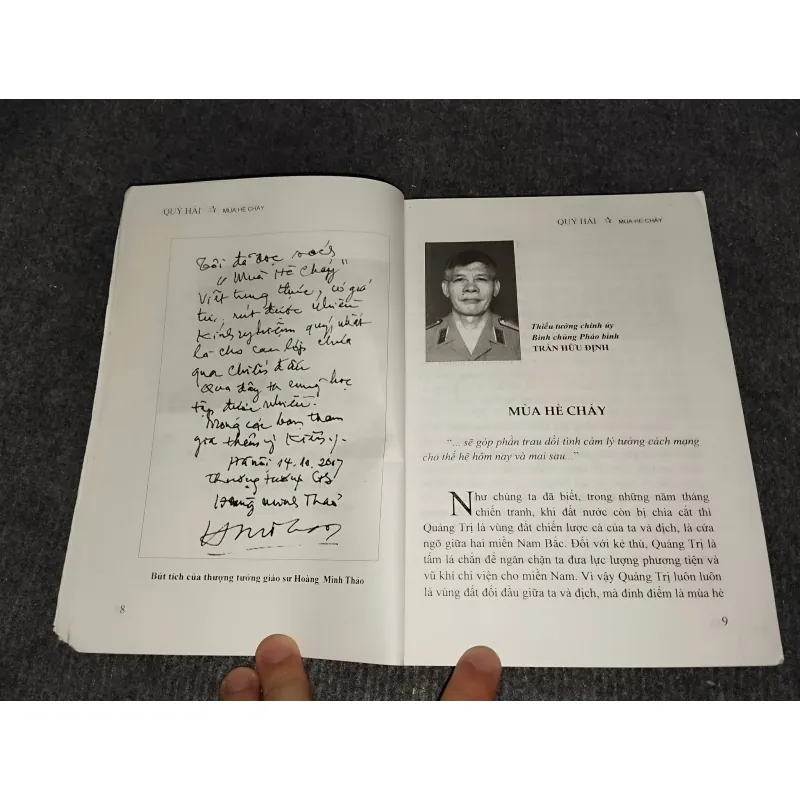 QUÝ HẢI ☆ MÙA HÈ CHÁY
Tôi đã đọc sách
"Mùa Hè Cháy"
Viết trung thực, có giá
trị, rút được nhiều
Kinh nghiệm quý, nhất
là cho các lớp chưa
qua chiến đấu
Qua đây ta cũng học
tập được nhiều.
Mong các bạn tham
gia thêm ý kiến
Hà Nội 14.10.2007
Thượng tướng GS
Hoàng Minh Thảo
Bút tích của thượng tướng giáo sư Hoàng Minh Thảo
8
QUÝ HẢI ☆ MÙA HÈ CHÁY
Thiếu tướng chính ủy
Binh chủng Pháo binh
TRẦN HỮU ĐỊNH
MÙA HÈ CHÁY
"... sẽ góp phần trau dồi tình cảm lý tưởng cách mạng
cho thế hệ hôm nay và mai sau..."
Như chúng ta đã biết, trong những năm tháng
chiến tranh, khi đất nước còn bị chia cắt thì
Quảng Trị là vùng đất chiến lược cả của ta và địch, là cửa
ngõ giữa hai miền Nam Bắc. Đối với kẻ thù, Quảng Trị là
tấm lá chắn để ngăn chặn ta đưa lực lượng phương tiện và
vũ khí chi viện cho miền Nam. Vì vậy Quảng Trị luôn luôn
là vùng đất đối đầu giữa ta và địch, mà đỉnh điểm là mùa hè
9